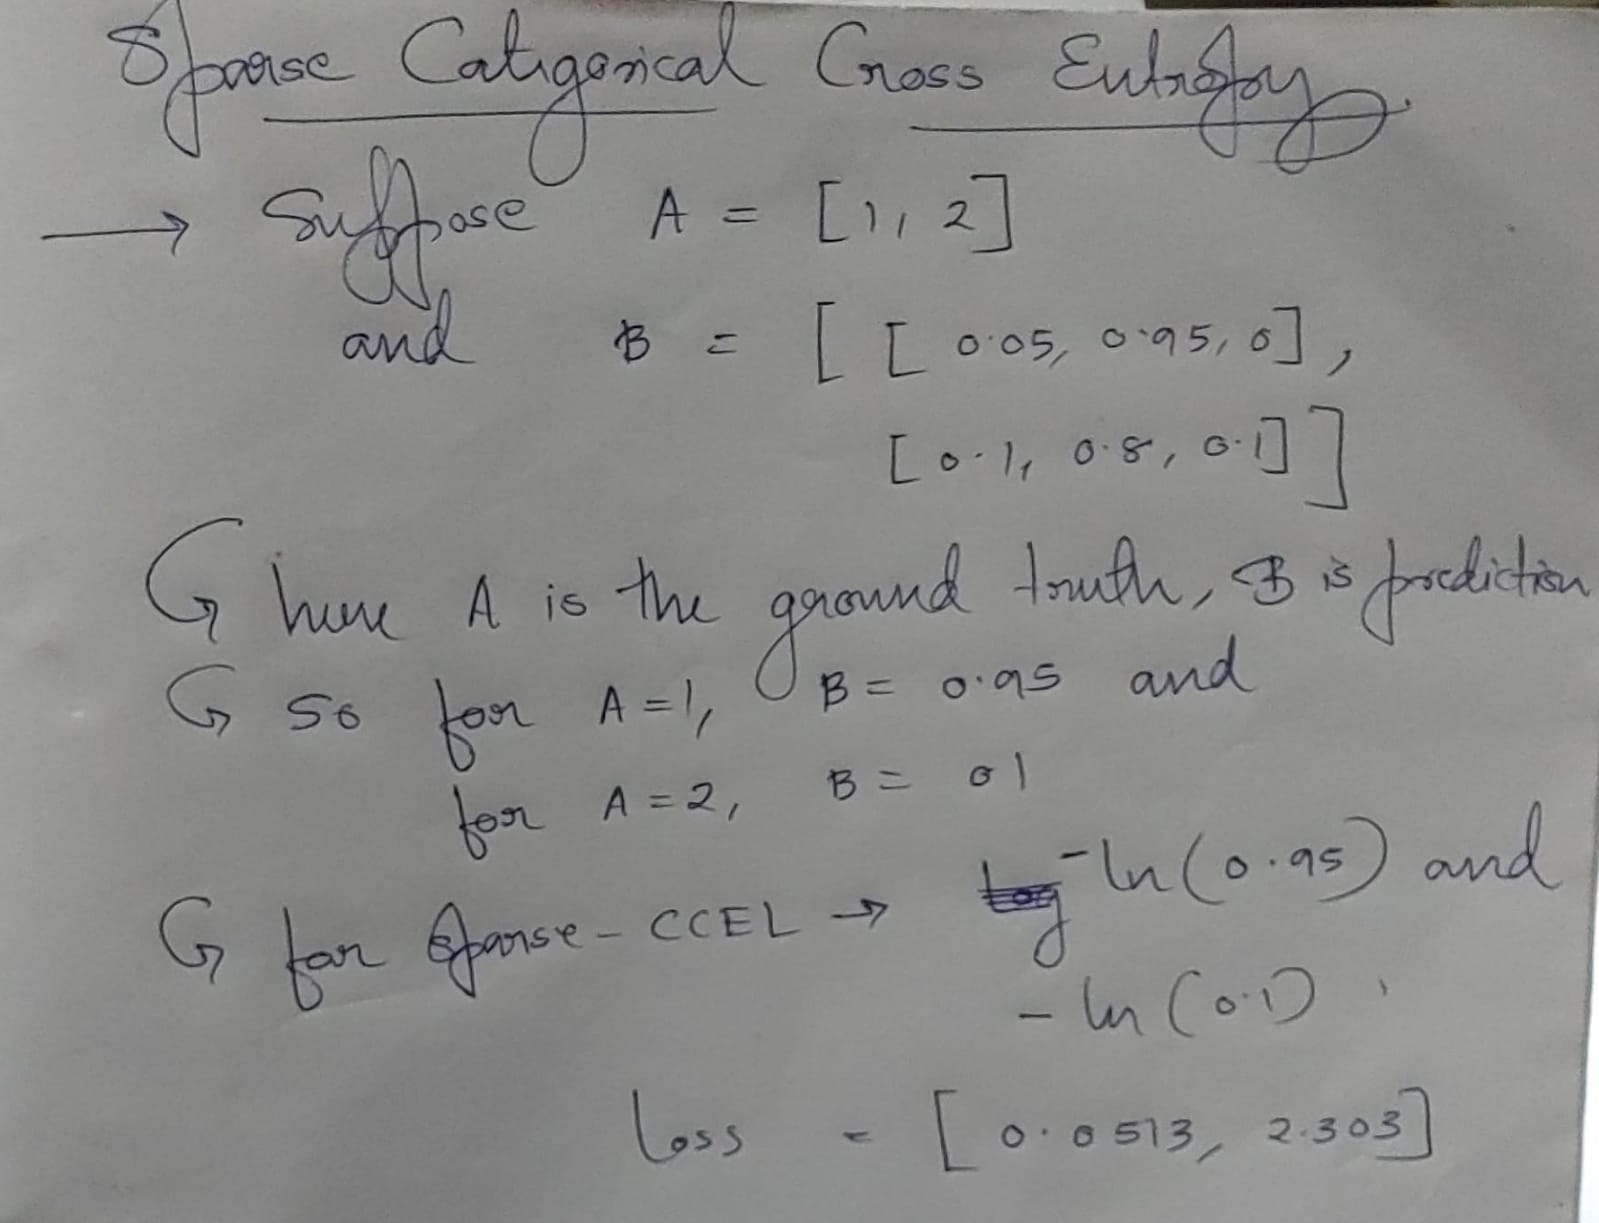 Sparse Catigorical Cross Entropy
→ Suppose A = [1, 2]
and B = [ [ 0.05, 0.95, 0 ] ,
[ 0.1, 0.8, 0.1 ] ]
here A is the ground truth, B is prediction
so for A = 1, B = 0.95 and
for A = 2, B = 01
for sparse - CCEL → - ln (0.95) and
- ln (0.1)
loss = [ 0.0513, 2.303 ]